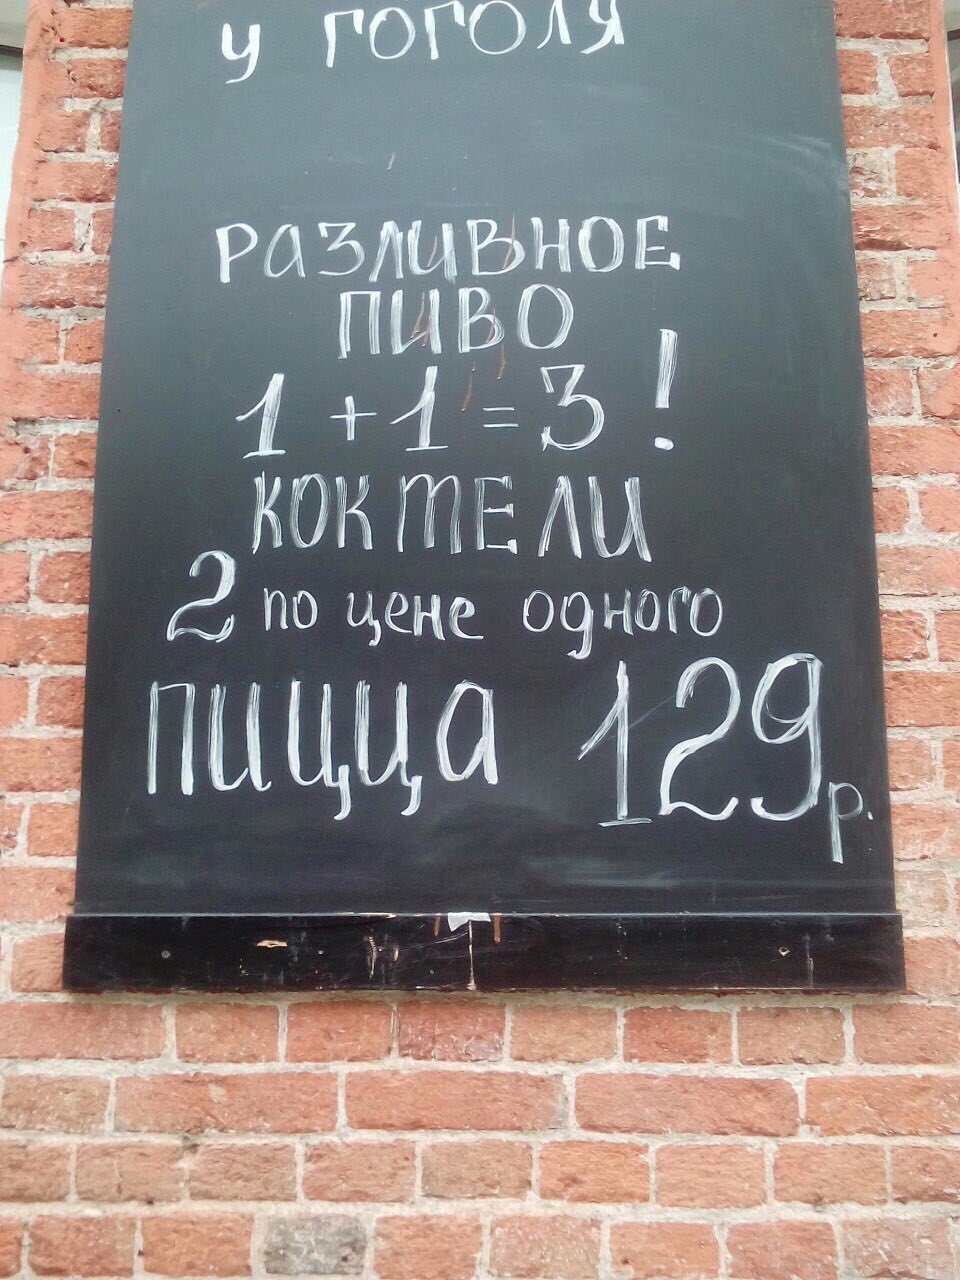 у гоголя
РАЗЛИВНОЕ
ПИВО
1+1=3!
КОКТЕЛИ
2 по цене одного
ПИЦЦа 129р.